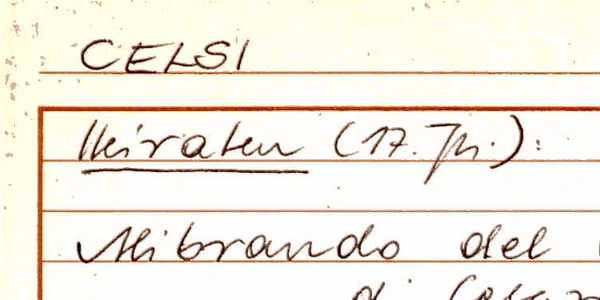 CELSI
Heiraten (17. Jh.):
Alibrando del
di